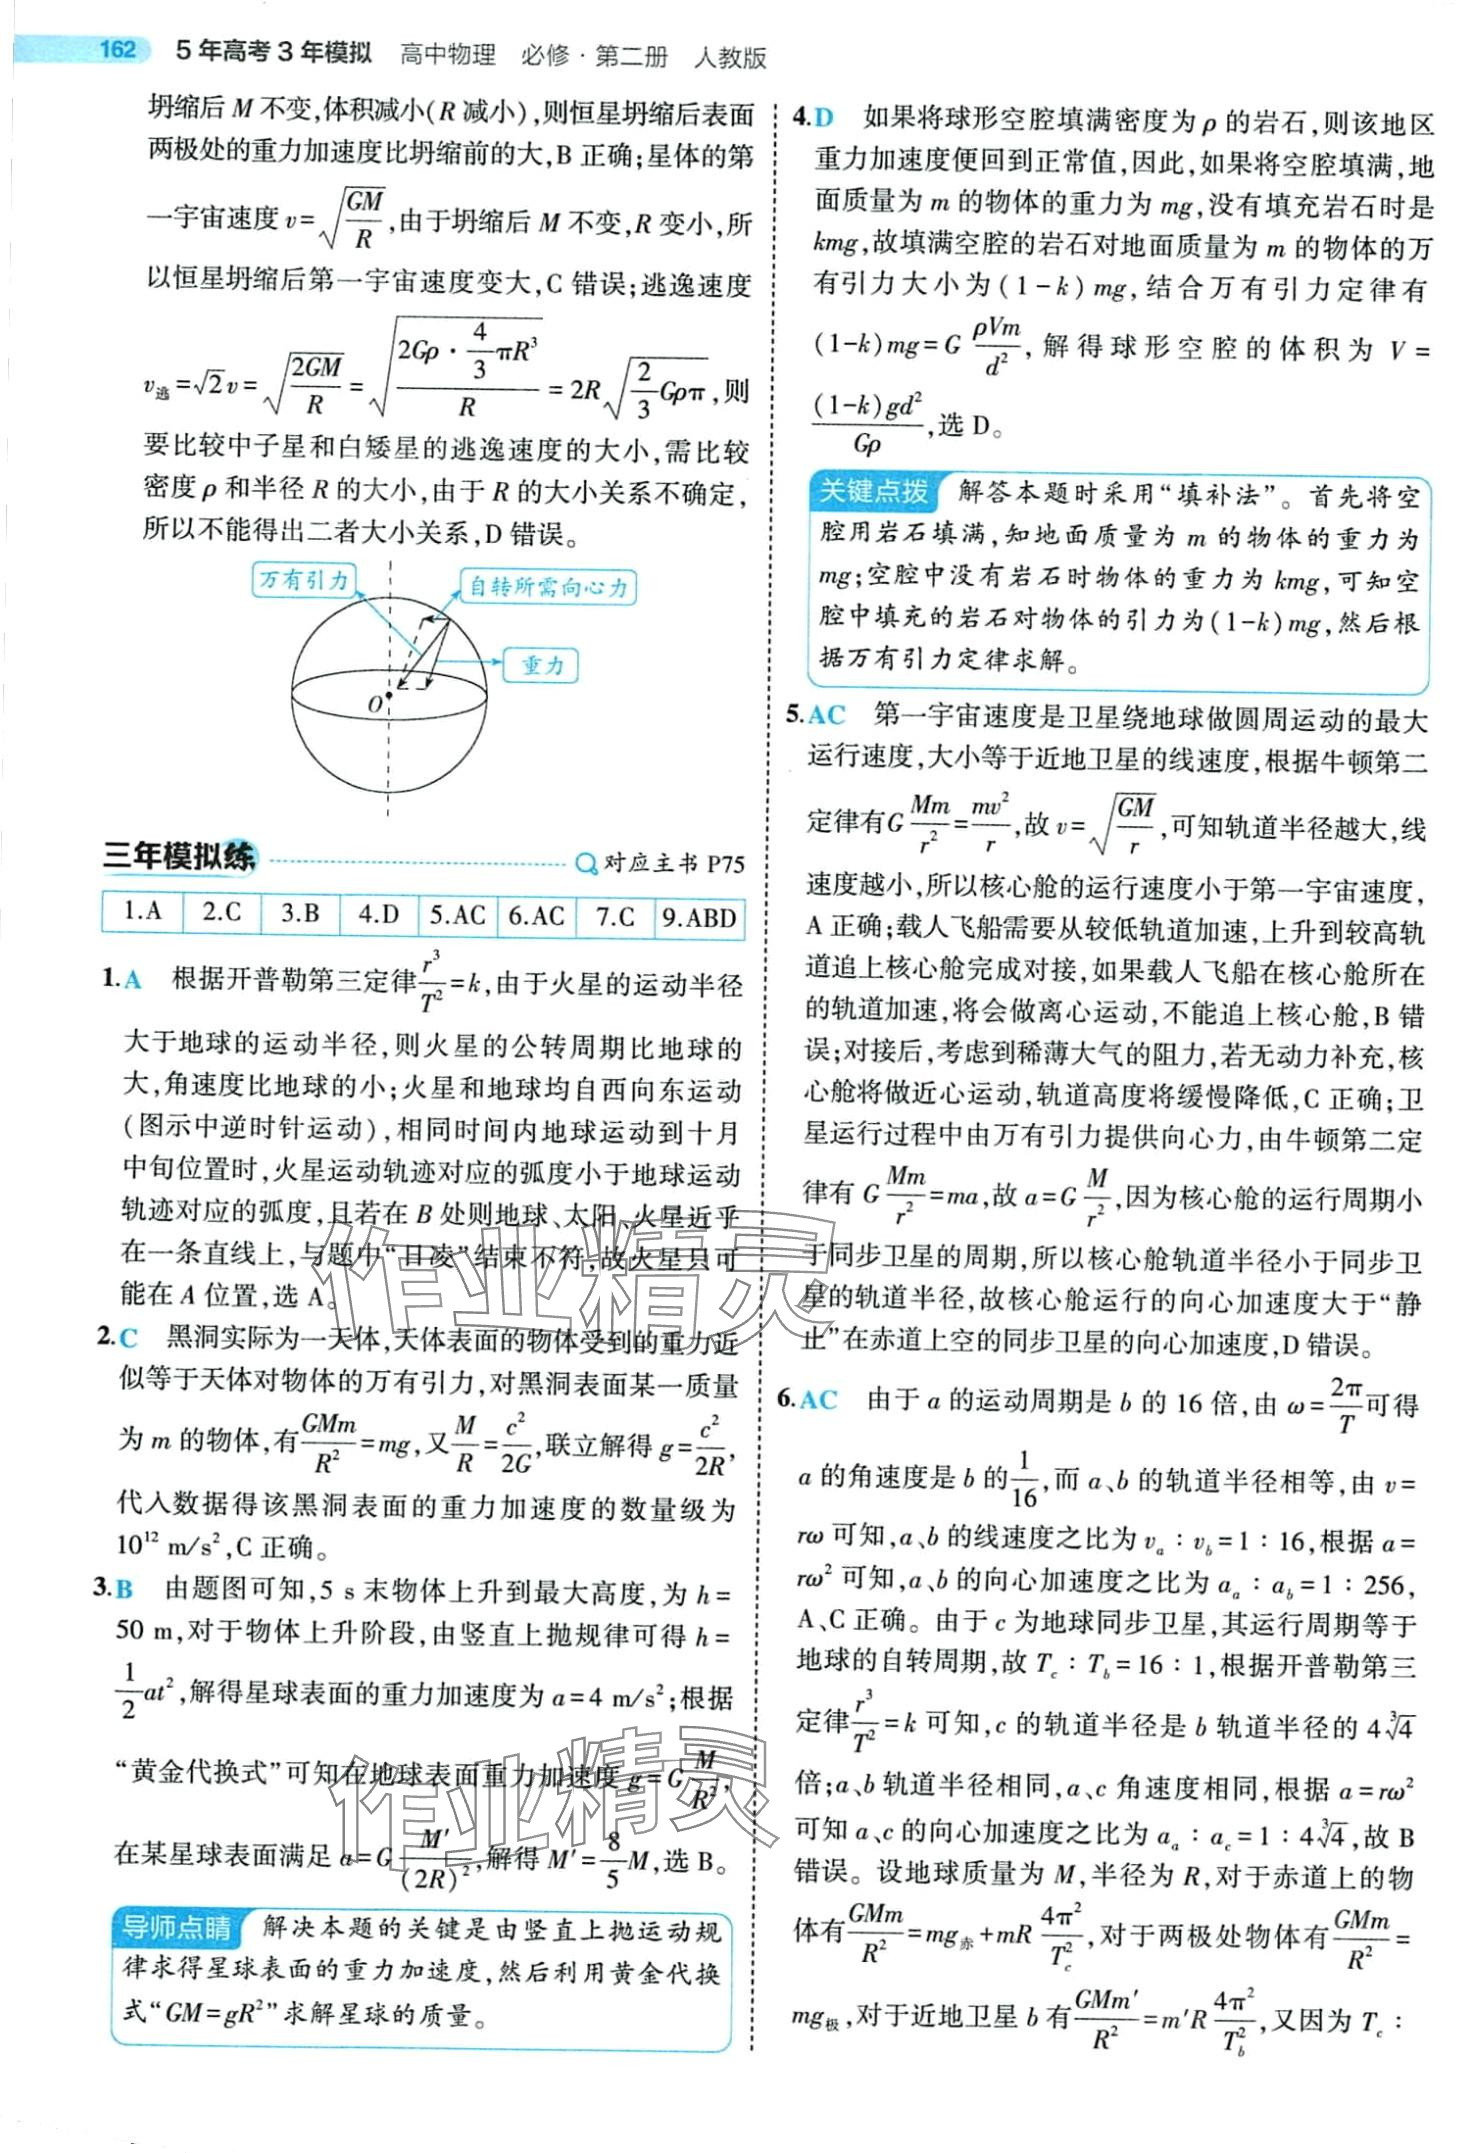 162 5年高考3年模拟 高中物理 必修·第二册 人教版
坍缩后 M 不变,体积减小(R 减小),则恒星坍缩后表面
两极处的重力加速度比坍缩前的大,B 正确;星体的第
一宇宙速度 v=√(GM/R),由于坍缩后 M 不变,R 变小,所
以恒星坍缩后第一宇宙速度变大,C 错误;逃逸速度
v逃=√2v=√(2GM/R)=√((2Gρ·(4/3)πR³)/R)=2R√((2/3)Gρπ),则
要比较中子星和白矮星的逃逸速度的大小,需比较
密度 ρ 和半径 R 的大小,由于 R 的大小关系不确定,
所以不能得出二者大小关系,D 错误。
万有引力
自转所需向心力
重力
O
三年模拟练 对应主书 P75
1.A 2.C 3.B 4.D 5.AC 6.AC 7.C 9.ABD
1.A 根据开普勒第三定律r³/T²=k,由于火星的运动半径
大于地球的运动半径,则火星的公转周期比地球的
大,角速度比地球的小;火星和地球均自西向东运动
(图示中逆时针运动),相同时间内地球运动到十月
中旬位置时,火星运动轨迹对应的弧度小于地球运动
轨迹对应的弧度,且若在 B 处则地球、太阳、火星近乎
在一条直线上,与题中“日凌”结束不符,故火星只可
能在 A 位置,选 A。
2.C 黑洞实际为一天体,天体表面的物体受到的重力近
似等于天体对物体的万有引力,对黑洞表面某一质量
为 m 的物体,有GMm/R²=mg,又M/R=c²/2G,联立解得 g=c²/2R,
代入数据得该黑洞表面的重力加速度的数量级为
10¹² m/s²,C 正确。
3.B 由题图可知,5 s 末物体上升到最大高度,为 h=
50 m,对于物体上升阶段,由竖直上抛规律可得 h=
1/2at²,解得星球表面的重力加速度为 a=4 m/s²;根据
“黄金代换式”可知在地球表面重力加速度 g=G M/R²,
在某星球表面满足 a=G M′/(2R)²,解得 M′=8/5M,选 B。
导师点睛 解决本题的关键是由竖直上抛运动规
律求得星球表面的重力加速度,然后利用黄金代换
式“GM=gR²”求解星球的质量。
4.D 如果将球形空腔填满密度为 ρ 的岩石,则该地区
重力加速度便回到正常值,因此,如果将空腔填满,地
面质量为 m 的物体的重力为 mg,没有填充岩石时是
kmg,故填满空腔的岩石对地面质量为 m 的物体的万
有引力大小为(1-k)mg,结合万有引力定律有
(1-k)mg=G ρVm/d²,解得球形空腔的体积为 V=
(1-k)gd²/Gρ,选 D。
关键点拨 解答本题时采用“填补法”。首先将空
腔用岩石填满,知地面质量为 m 的物体的重力为
mg;空腔中没有岩石时物体的重力为 kmg,可知空
腔中填充的岩石对物体的引力为(1-k)mg,然后根
据万有引力定律求解。
5.AC 第一宇宙速度是卫星绕地球做圆周运动的最大
运行速度,大小等于近地卫星的线速度,根据牛顿第二
定律有G Mm/r²=mv²/r,故 v=√(GM/r),可知轨道半径越大,线
速度越小,所以核心舱的运行速度小于第一宇宙速度,
A 正确;载人飞船需要从较低轨道加速,上升到较高轨
道追上核心舱完成对接,如果载人飞船在核心舱所在
的轨道加速,将会做离心运动,不能追上核心舱,B 错
误;对接后,考虑到稀薄大气的阻力,若无动力补充,核
心舱将做近心运动,轨道高度将缓慢降低,C 正确;卫
星运行过程中由万有引力提供向心力,由牛顿第二定
律有 G Mm/r²=ma,故 a=G M/r²,因为核心舱的运行周期小
于同步卫星的周期,所以核心舱轨道半径小于同步卫
星的轨道半径,故核心舱运行的向心加速度大于“静
止”在赤道上空的同步卫星的向心加速度,D 错误。
6.AC 由于 a 的运动周期是 b 的 16 倍,由 ω=2π/T可得
a 的角速度是 b 的1/16,而 a、b 的轨道半径相等,由 v=
rω 可知,a、b 的线速度之比为 vₐ:v_b=1:16,根据 a=
rω² 可知,a、b 的向心加速度之比为 aₐ:a_b=1:256,
A、C 正确。由于 c 为地球同步卫星,其运行周期等于
地球的自转周期,故 T_c:T_b=16:1,根据开普勒第三
定律r³/T²=k 可知,c 的轨道半径是 b 轨道半径的 4∛4
倍;a、b 轨道半径相同,a、c 角速度相同,根据 a=rω²
可知 a、c 的向心加速度之比为 aₐ:a_c=1:4∛4,故 B
错误。设地球质量为 M,半径为 R,对于赤道上的物
体有GMm/R²=mg赤+mR 4π²/T_c²,对于两极处物体有GMm/R²=
mg极,对于近地卫星 b 有GMm′/R²=m′R 4π²/T_b²,又因为 T_c:
作业精灵
作业精灵